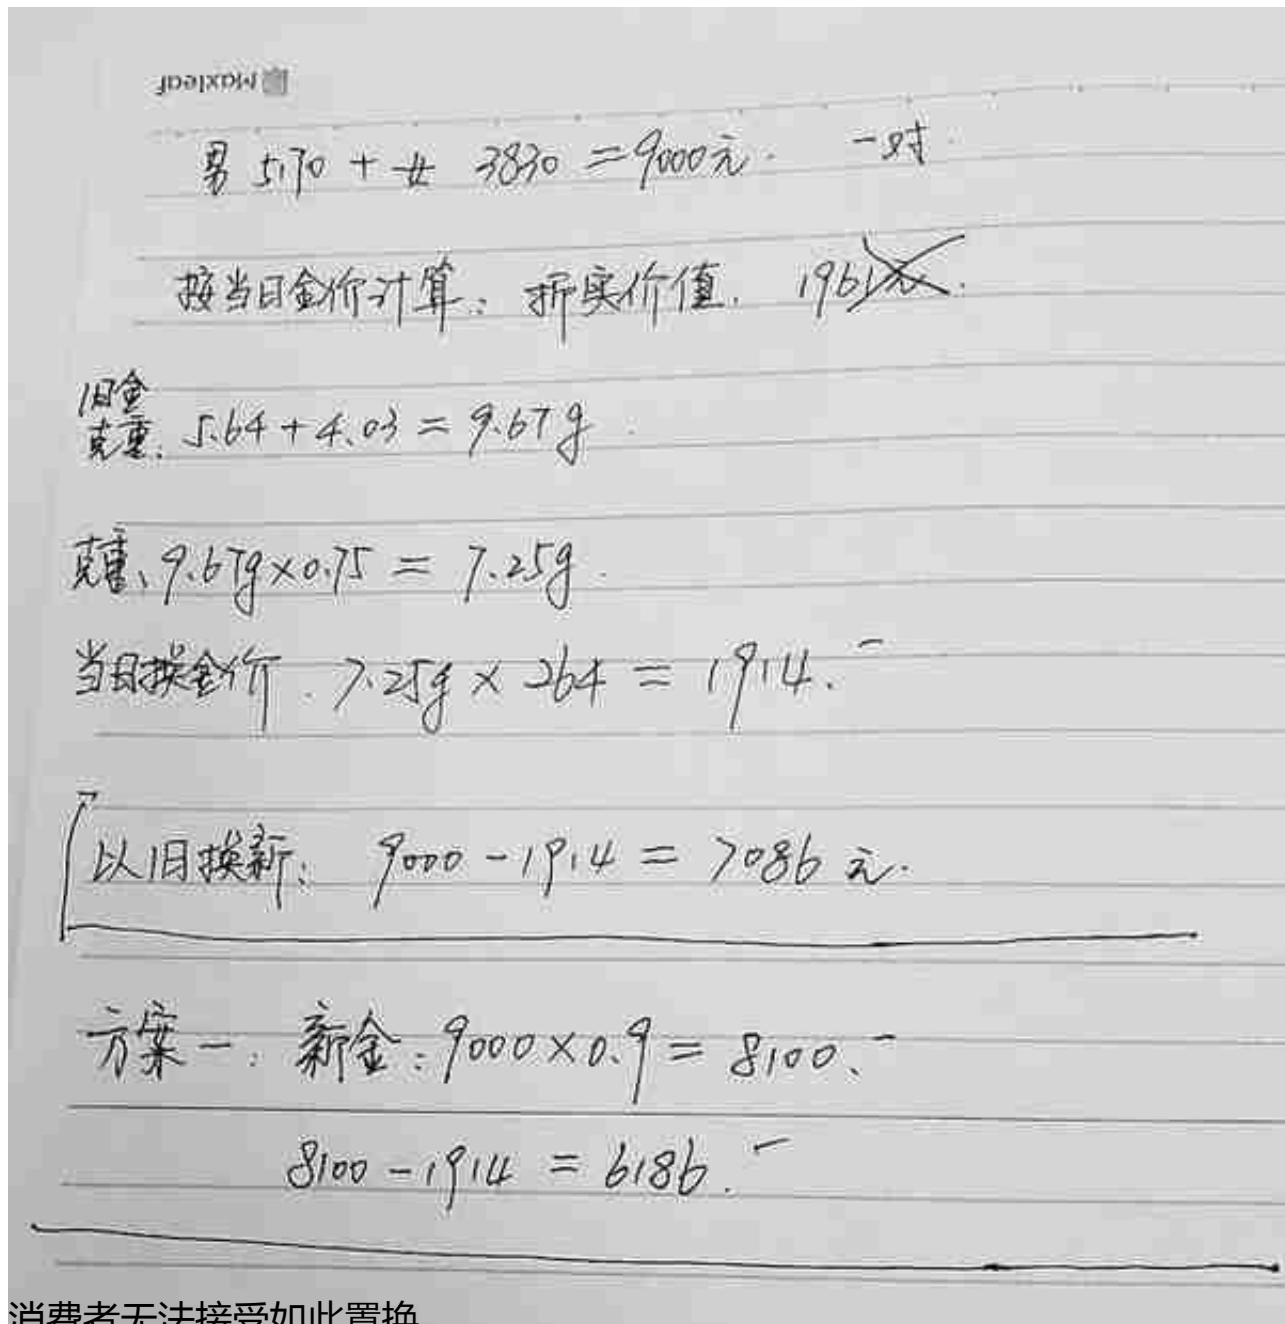 Maxleaf
男 5170 + 女 3830 = 9000元. 一对.
按当日金价计算: 折实价值. 1961元.
旧金
克重: 5.64 + 4.03 = 9.67g.
克重: 9.67g×0.75 = 7.25g.
当日换金价. 7.25g × 264 = 1914.-
以旧换新: 9000 - 1914 = 7086 元.
方案一: 新金: 9000×0.9 = 8100.-
8100 - 1914 = 6186.-
消费者无法接受如此置换